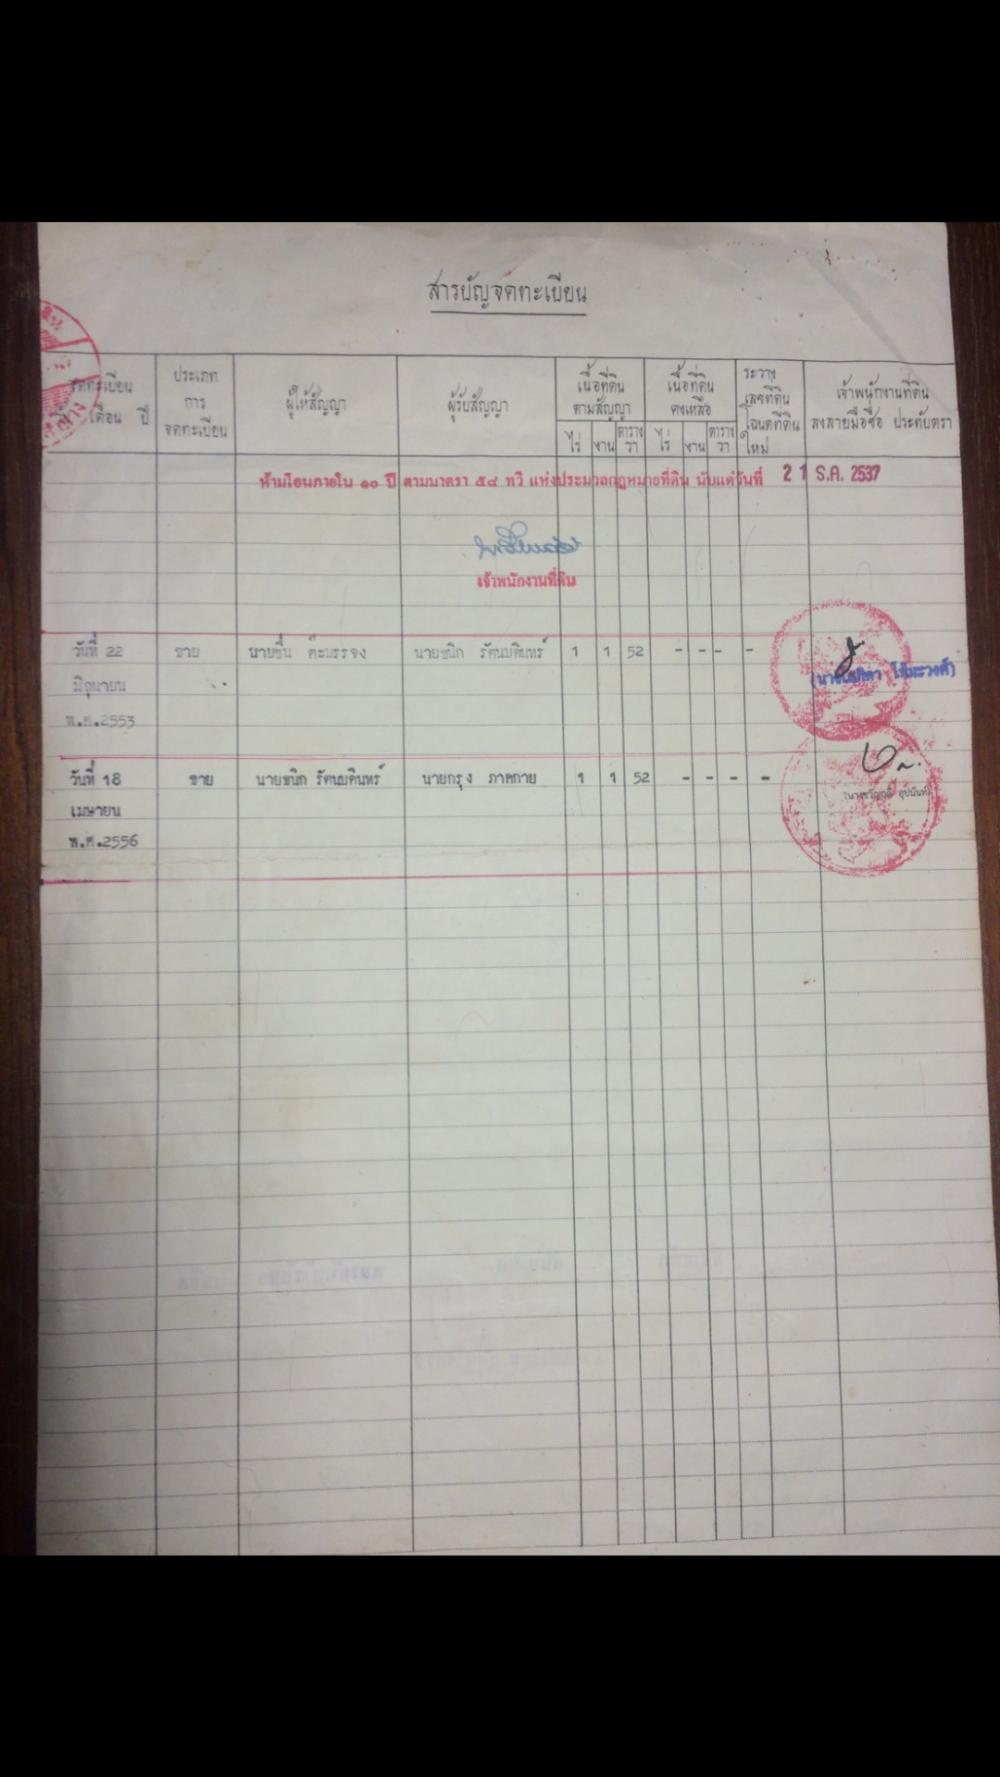 สารบัญจดทะเบียน
จดทะเบียน
เดือน ปี
ประเภท
การ
จดทะเบียน
ผู้ให้สัญญา
ผู้รับสัญญา
เนื้อที่ดิน
ตามสัญญา
ไร่ งาน ตาราง
วา
เนื้อที่ดิน
คงเหลือ
ไร่ งาน ตาราง
วา
ระวาง
เลขที่ดิน
โฉนดที่ดิน
ใหม่
เจ้าพนักงานที่ดิน
ลงลายมือชื่อ ประทับตรา
ห้ามโอนภายใน ๑๐ ปี ตามมาตรา ๕๘ ทวิ แห่งประมวลกฎหมายที่ดิน นับแต่วันที่ 21 ธ.ค. 2537
เจ้าพนักงานที่ดิน
วันที่ 22 ขาย นายชื่น ต๊ะบรรจง นายชนิก รัตนบดินทร์ 1 1 52 - - - -
มิถุนายน
พ.ศ.2553
วันที่ 18 ขาย นายชนิก รัตนบดินทร์ นายกรุง ภาคกาย 1 1 52 - - - -
เมษายน
พ.ศ.2556